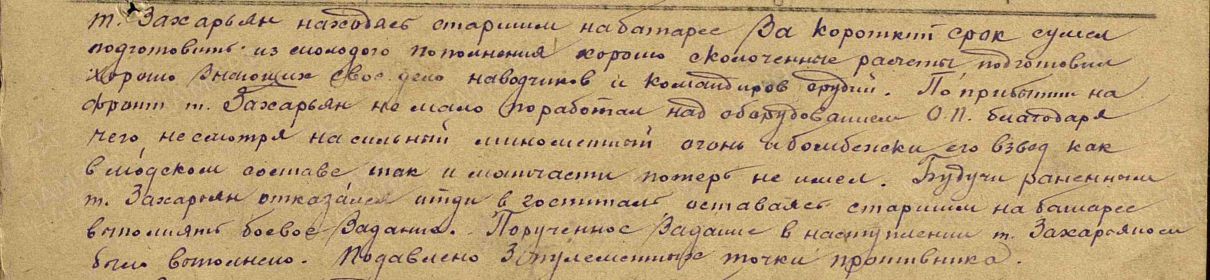 т. Захарьян находясь старшим на батарее За короткий срок сумел
подготовить из молодого пополнения хорошо сколоченные расчеты подготовил
хорошо знающих свое дело наводчиков и командиров орудий. По прибытии на
фронт т. Захарьян не мало поработал над оборудованием О.П. благодаря
чего несмотря на сильный минометный огонь и бомбежки его взвод как
в людском составе так и матчасти потерь не имел. Будучи раненным
т. Захарьян отказался итди в госпиталь оставаясь старшим на батарее
выполнять боевое Задание. Порученное Задание в наступлении т. Захарьяном
было выполнено. Подавлено 3 пулеметных точки противника.